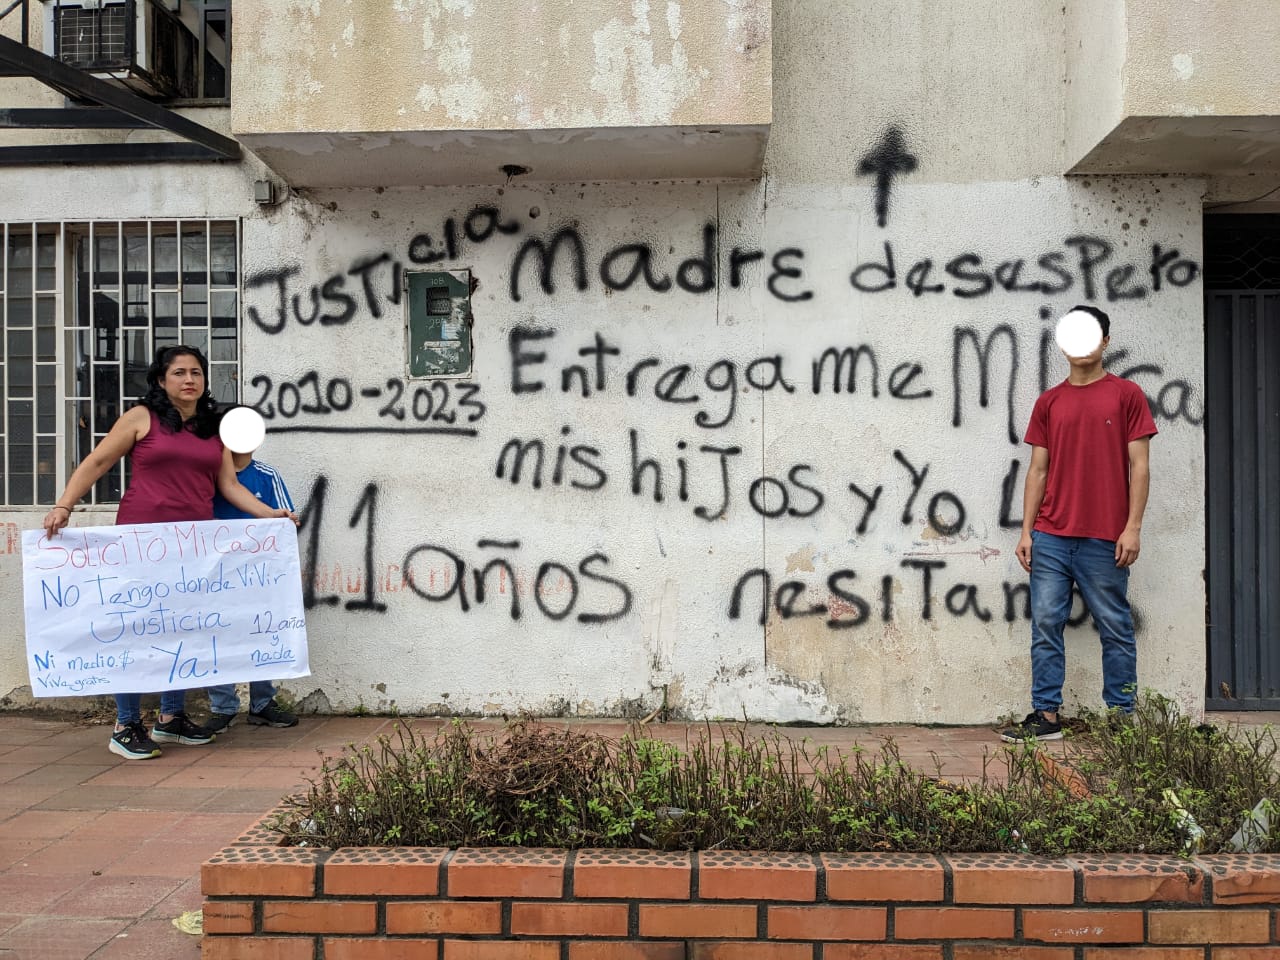 JUSTICIA
2010-2023
11 años
Madre desespero
Entregame
mis hijos y Yo
nesitamos
Solicito Mi Casa
No Tengo donde ViVir
Justicia
12 años
y
nada
Ya!
Ni medio $
ViVe gratis